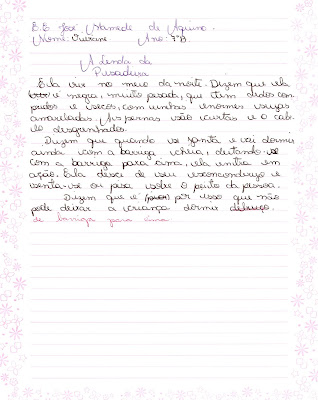 E.E José Mamede de Aquino.
Nome: Ano: 7ºB.
A lenda da
Pisadeira
Ela vive no meio da noite. Dizem que ela
é negra, muito pesada, que tem dedos com
pridos e secos, com unhas enormes sujas
amareladas. As pernas são curtas e o cab
elo desgrenhado.
Dizem que quando se janta e vai dormir
ainda com a barriga cheia, deitando-se
com a barriga para cima, ela entra em
ação. Ela desce de seu esconderijo e
senta-se ou pisa sobre o peito da pessoa.
Dizem que é por isso que não
pode deixar a criança dormir
de barriga para cima